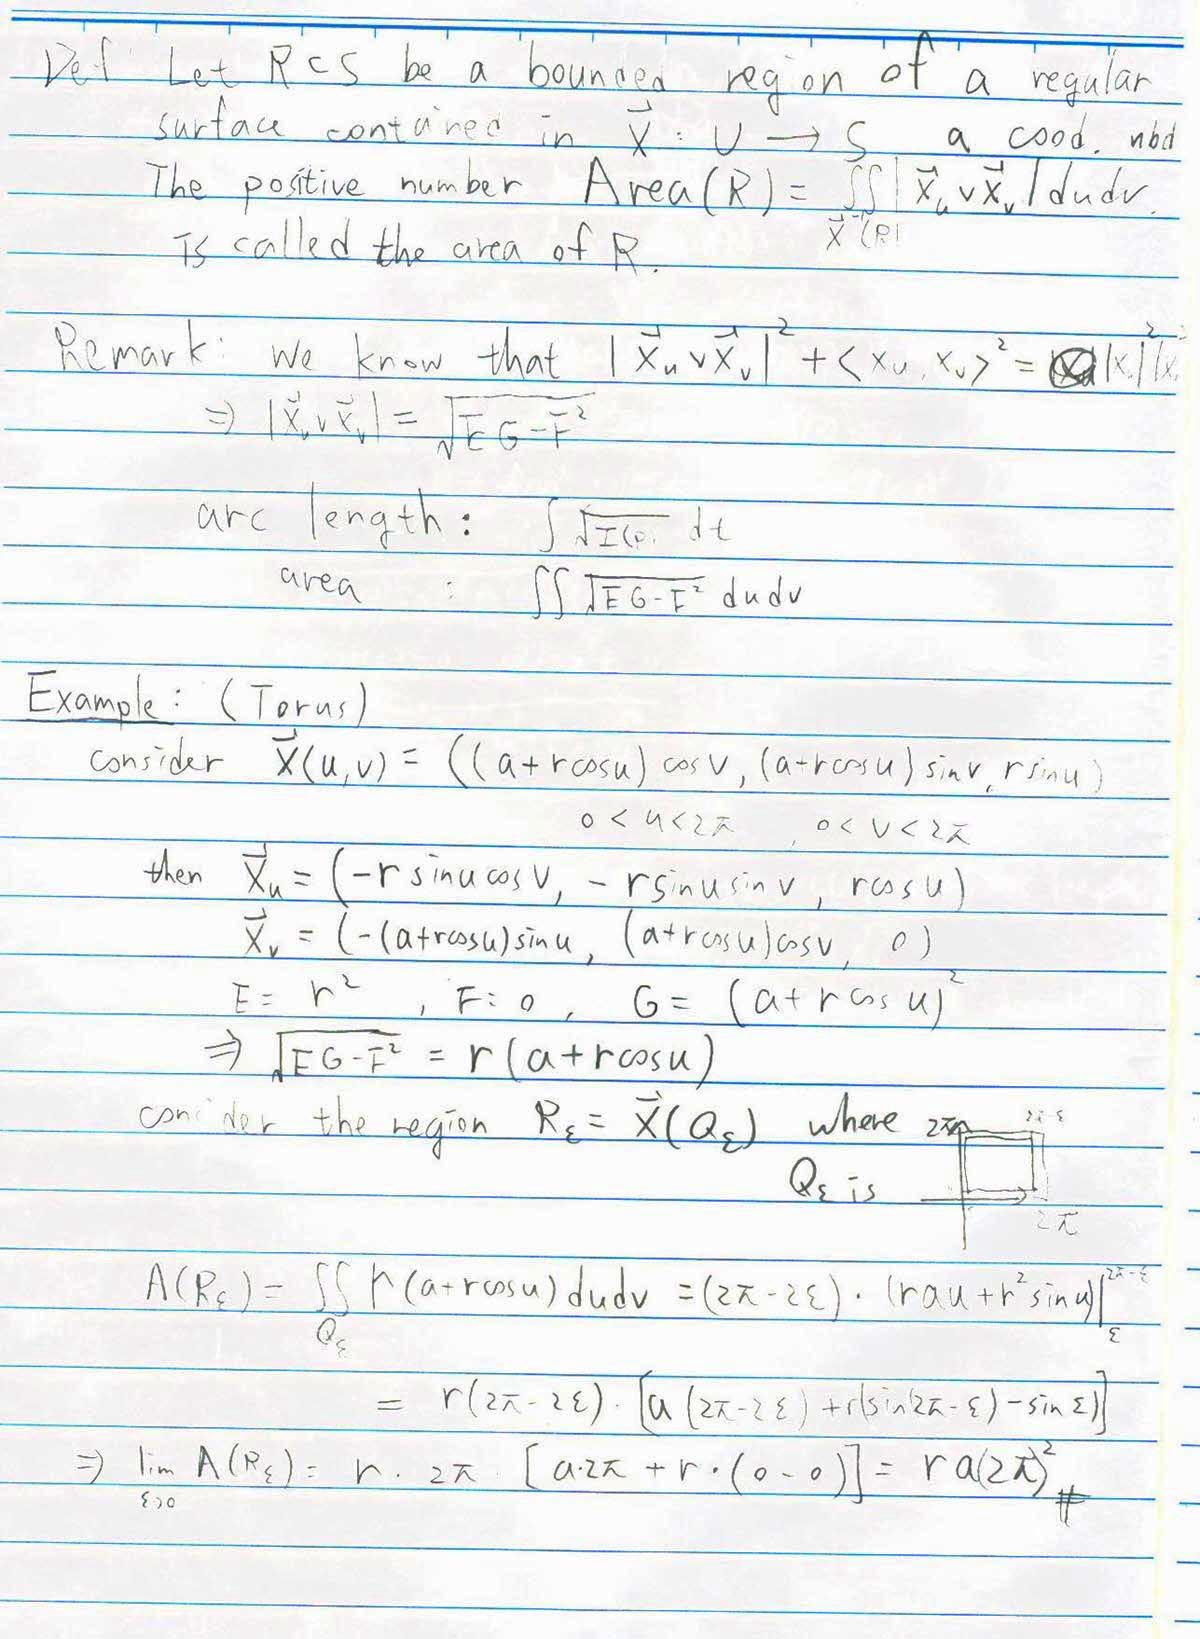 Def Let R⊂S be a bounded region of a regular
surface contained in X⃗ : U → S a cood. nbd
The positive number Area(R) = ∬_{X⃗⁻¹(R)} |X⃗_u ∨ X⃗_v| du dv.
is called the area of R.
Remark: we know that |X⃗_u ∨ X⃗_v|² + <x_u, x_v>² = |x_u|² |x_v
⇒ |X⃗_u ∨ X⃗_v| = √(EG-F²)
arc length: ∫ √I( ) dt
area : ∬ √(EG-F²) du dv
Example: (Torus)
consider X⃗(u,v) = ((a+rcosu) cosv, (a+rcosu) sinv, rsinu)
0<u<2π , 0<v<2π
then X⃗_u = (-r sinu cosv, -r sinu sinv, rcosu)
X⃗_v = (-(a+rcosu) sinu, (a+rcosu)cosv, 0)
E = r², F = 0, G = (a+rcosu)²
⇒ √(EG-F²) = r(a+rcosu)
consider the region R_ε = X⃗(Q_ε) where 2π 2π-ε
Q_ε is
2π
A(R_ε) = ∬_{Q_ε} r(a+rcosu) du dv = (2π-2ε)·(rau+r²sinu)|_ε^{2π-ε}
= r(2π-2ε)·[a(2π-2ε)+r(sin(2π-ε)-sinε)]
⇒ lim_{ε→0} A(R_ε) = r·2π·[a·2π+r·(0-0)] = ra(2π)² #